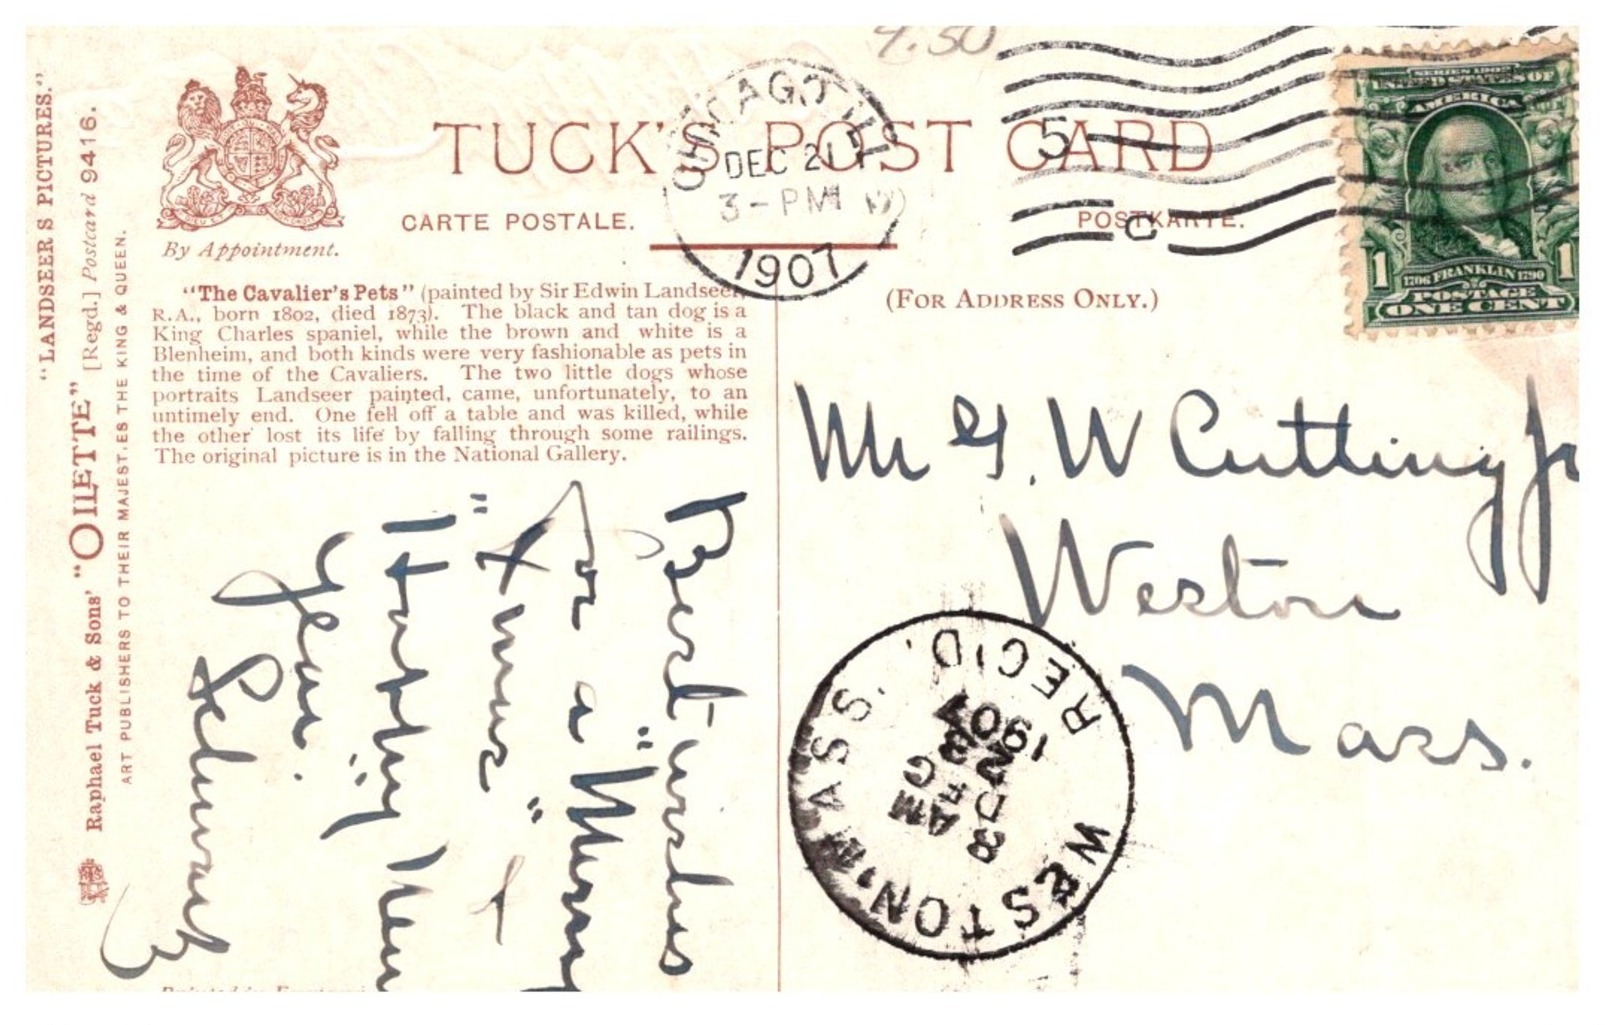 4.50
TUCK'S POST CARD
CARTE POSTALE.
POSTKARTE.
By Appointment.
(FOR ADDRESS ONLY.)
CHICAGO, ILL
DEC 21
3-PM
1907
5
C
SERIES 1902
UNITED STATES OF
AMERICA
1706 FRANKLIN 1790
1 1
POSTAGE
ONE CENT
"LANDSEER'S PICTURES."
Raphael Tuck & Sons' "OILETTE" [Regd.] Postcard 9416.
ART PUBLISHERS TO THEIR MAJESTIES THE KING & QUEEN.
"The Cavalier's Pets" (painted by Sir Edwin Landseer,
R.A., born 1802, died 1873). The black and tan dog is a
King Charles spaniel, while the brown and white is a
Blenheim, and both kinds were very fashionable as pets in
the time of the Cavaliers. The two little dogs whose
portraits Landseer painted, came, unfortunately, to an
untimely end. One fell off a table and was killed, while
the other lost its life by falling through some railings.
The original picture is in the National Gallery.
Best wishes
for a "Merry
"Xmas" +
"Happy New
Year."
Mr G. W Cutting Jr
Weston
Mass.
WESTON, MASS.
REC'D.
8 AM
DEC
23
1907